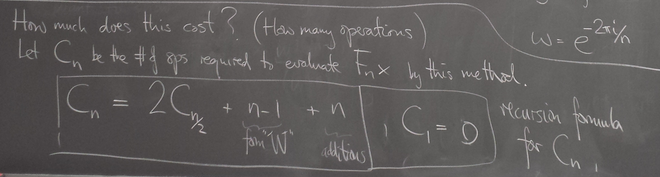 How much does this cost? (How many operations)
w = e^{-2πi/n}
Let C_n be the # of ops required to evaluate F_n x by this method.
C_n = 2C_{n/2} + n-1 + n , C_1 = 0
from "W" additions
recursion formula
for C_n.